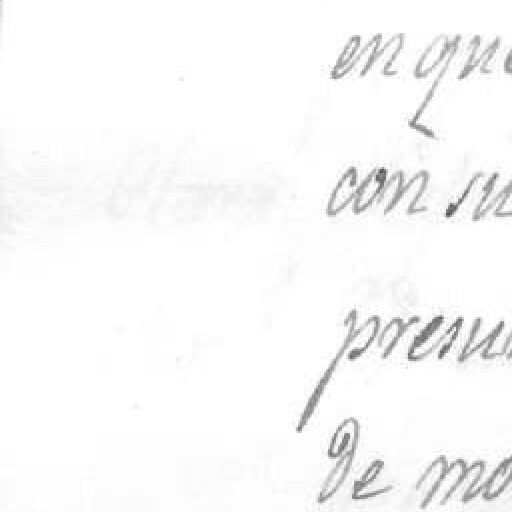 en que
con su
presu
de mo